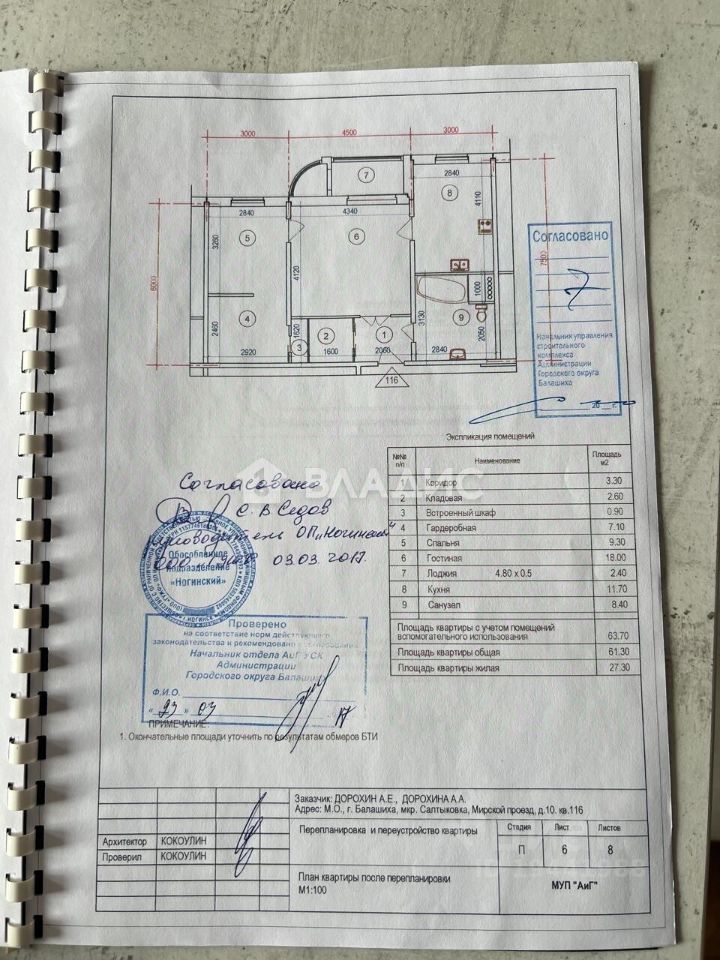 3000
4500
3000
7
2840
4340
2840
4110
8
5
6
3260
4120
6000
7500
1000
3130
9
2050
4
2460
1620
3
2
1
2920
1600
2060
2840
116
Согласовано
Начальник управления
строительного
комплекса
Администрации
Городского округа
Балашиха
20 г.
Экспликация помещений
№№ п/п Наименование Площадь м2
1 Коридор 3.30
2 Кладовая 2.60
3 Встроенный шкаф 0.90
4 Гардеробная 7.10
5 Спальня 9.30
6 Гостиная 18.00
7 Лоджия 4.80 x 0.5 2.40
8 Кухня 11.70
9 Санузел 8.40
Площадь квартиры с учетом помещений
вспомогательного использования 63.70
Площадь квартиры общая 61.30
Площадь квартиры жилая 27.30
ВЛАДИС
Согласовано
С. В Седов
ОП „Ногинский"
ООО 03.03.2017.
Обособленное
подразделение
«НОГИНСКИЙ»
Проверено
на соответствие норм действующего
законодательства и рекомендовано к согласованию
Начальник отдела АиГ УСК
Администрации
Городского округа Балашиха
Ф.И.О.
« 23 » 03 17
ПРИМЕЧАНИЕ:
1. Окончательные площади уточнить по результатам обмеров БТИ
Заказчик: ДОРОХИН А.Е., ДОРОХИНА А.А.
Адрес: М.О., г. Балашиха, мкр. Салтыковка, Мирской проезд, д.10. кв.116
Архитектор КОКОУЛИН
Проверил КОКОУЛИН
Перепланировка и переустройство квартиры
Стадия Лист Листов
П 6 8
План квартиры после перепланировки
М1:100
МУП "АиГ"